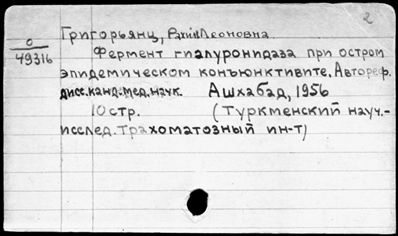 2
Григорьянц, Леоновна
О
49316
Фермент гиалуронидаза при остром
эпидемическом конъюнктивите. Автореф.
дисс. канд. мед. наук. Ашхабад, 1956
10 стр. (Туркменский науч.-
исслед. трахоматозный ин-т)